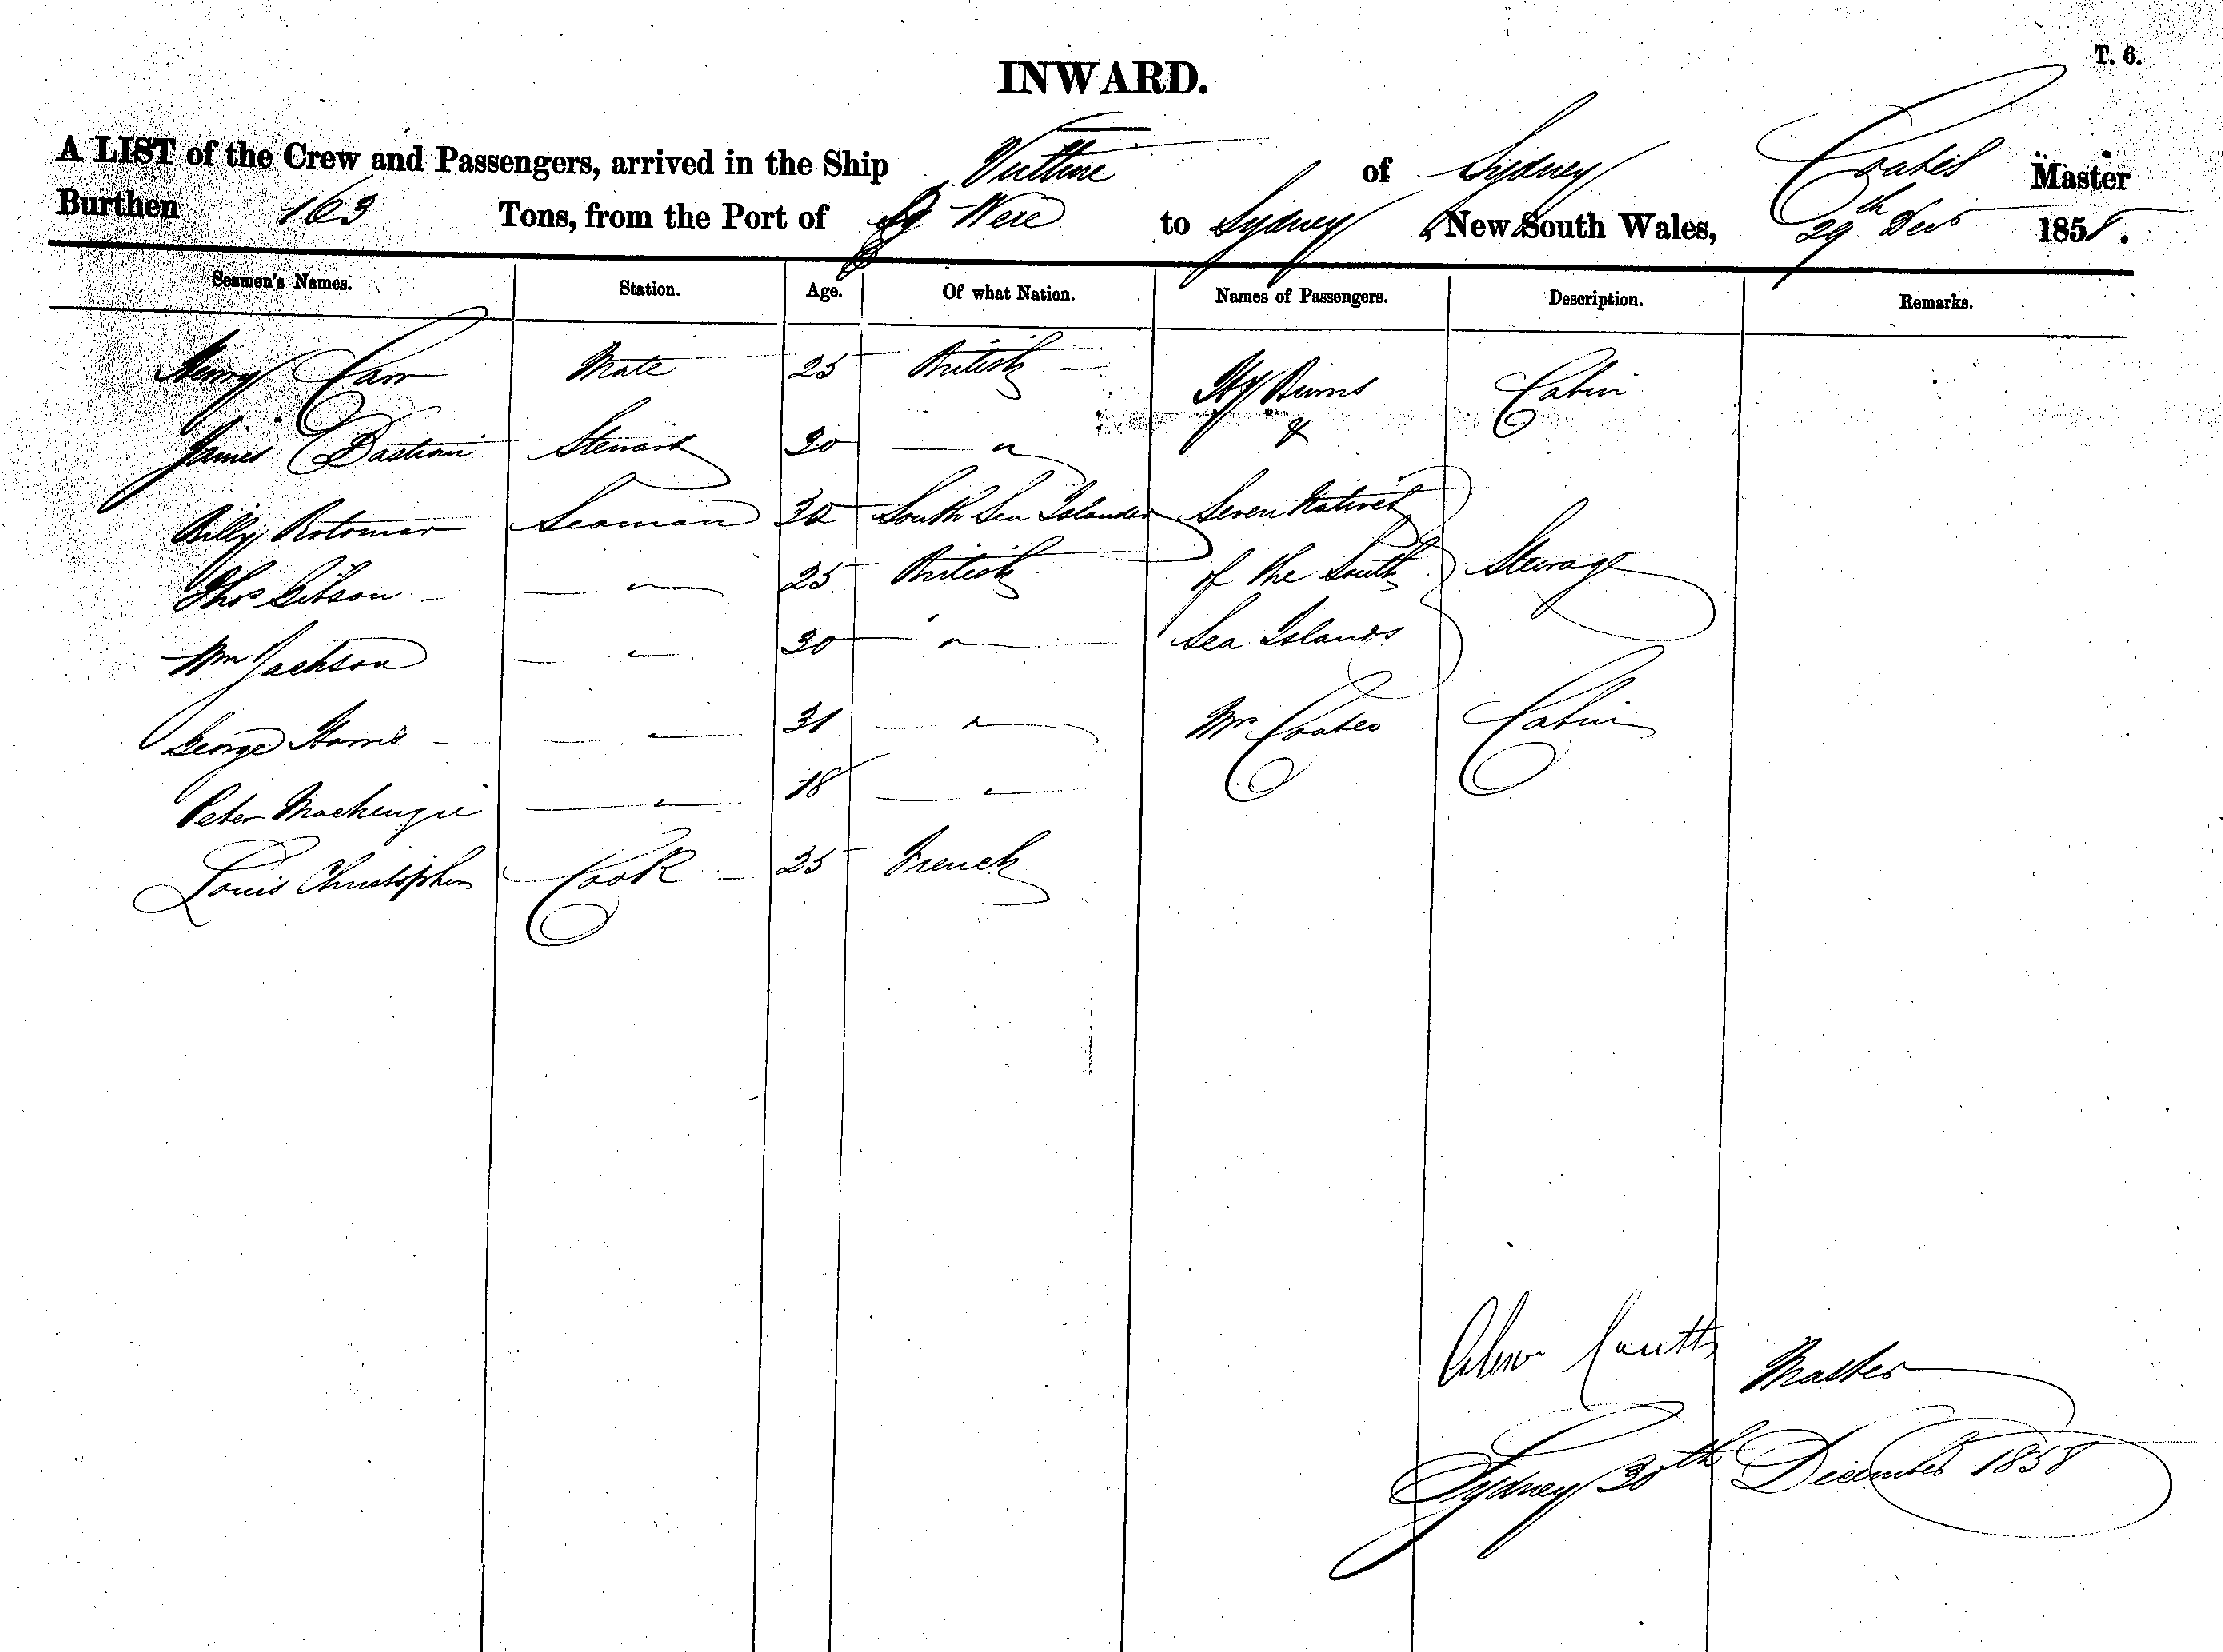 T. 6.
INWARD.
A LIST of the Crew and Passengers, arrived in the Ship of Sydney Coates Master
Burthen 163 Tons, from the Port of to Sydney, New South Wales, 29th Decr 1858.
Seamen's Names. Station. Age. Of what Nation. Names of Passengers. Description. Remarks.
Henry Carr Mate 25 British Hy Burns Cabin
James Bastian Steward 30 " &
Billy Rotomar Seaman 30 South Sea Islander Seven Natives
Thos Gibson " 25 British of the South Steerage
Wm Jackson " 30 " Sea Islands
George Harris " 31 " Coates Cabin
Peter Mackenzie " 18 "
Louis Christopher Cook 25 French
Coutts Master
Sydney 30th December 1858